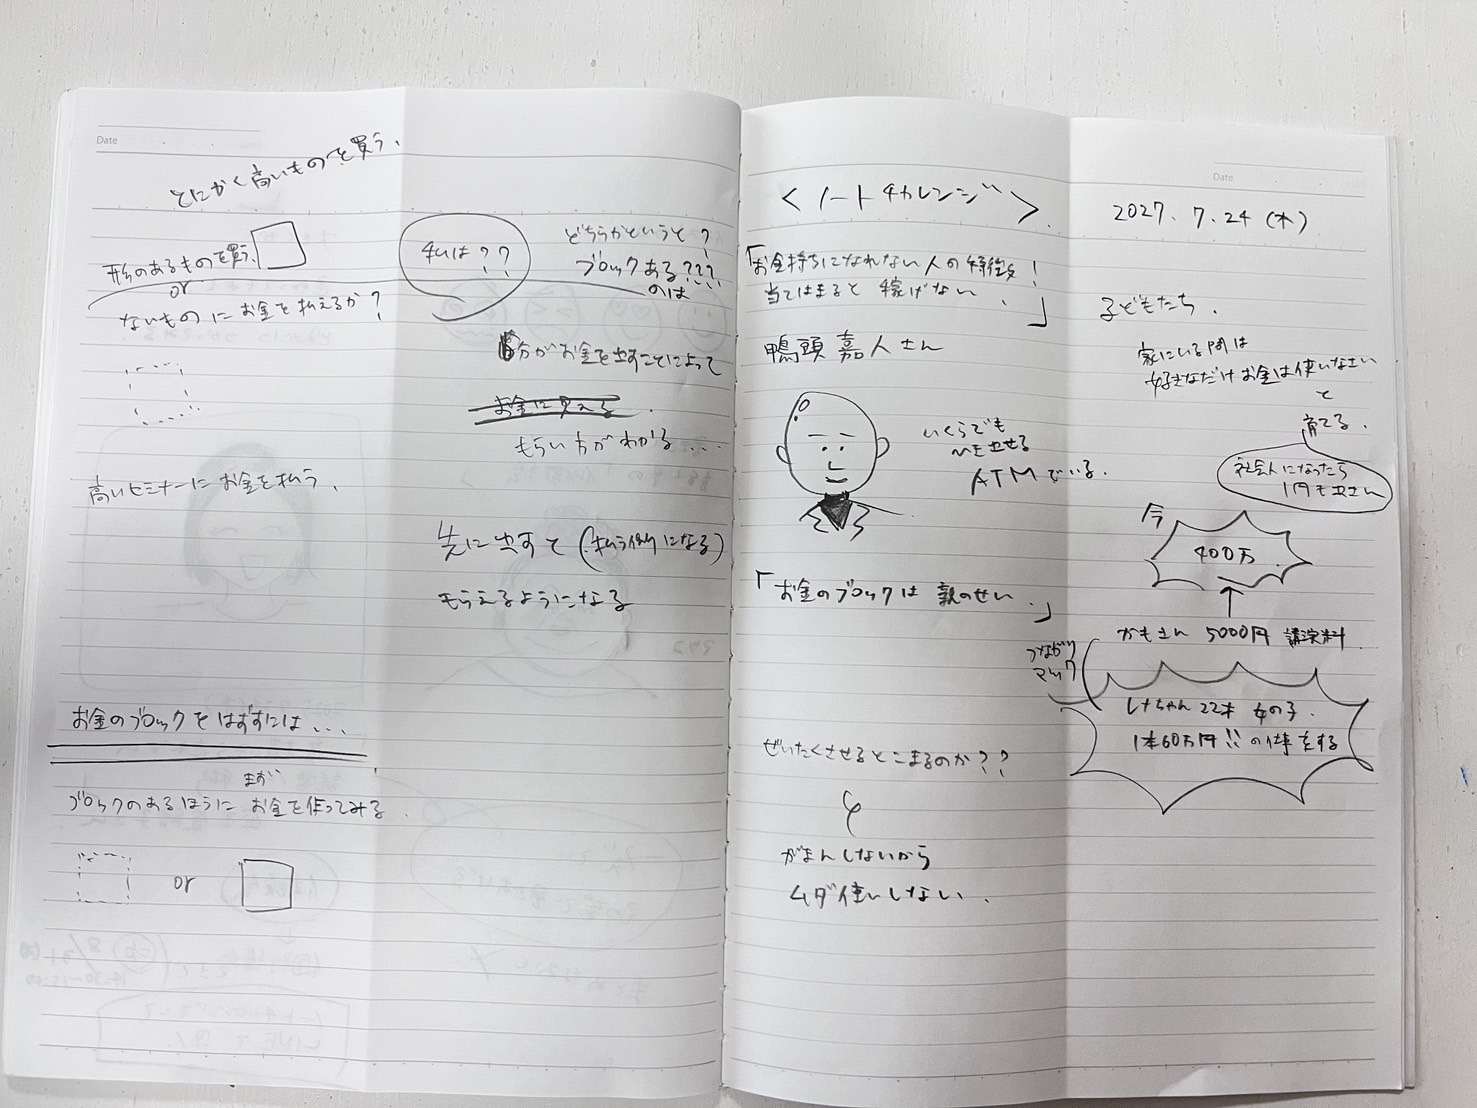 Date
とにかく高いものを買う.
形のあるものを買う.
or
ないものに お金を払えるか?
私は??
どちらかというと?
ブロックある???
のは
自分がお金を出すことによって
もらい方がわかる...
高いセミナーにお金を払う.
先に出すと(払う側になる)
もらえるようになる
お金のブロックをはずすには...
まず
ブロックのあるほうに お金を作ってみる.
or
Date
<ノートチャレンジ>
2027. 7. 24 (木)
「お金持ちになれない人の特徴!
当てはまると 稼げない.」
鴨頭 嘉人さん
いくらでも
出せる
ATMでいる.
「お金のブロックは 親のせい.」
ぜいたくさせるとこまるのか??
がまんしないから
ムダ使いしない.
子どもたち.
家にいる間は
好きなだけお金は使いなさい
と
育てる.
社会人になったら
1円も出さん
今
400万
かもさん 5000円 講演料
つながり
マック
レナちゃん 22才 女の子.
1本60万円!! の仕事をする